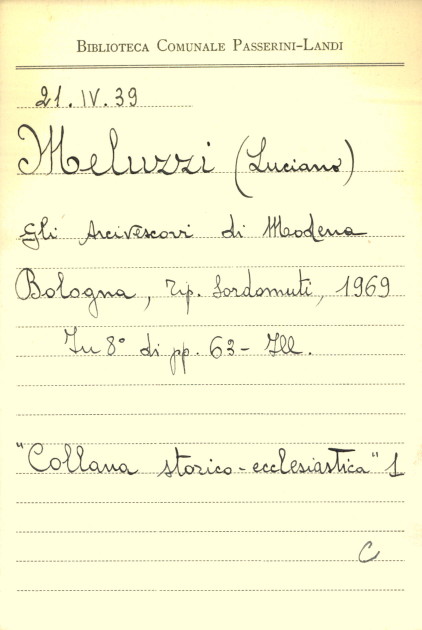 BIBLIOTECA COMUNALE PASSERINI-LANDI
21. IV. 39
Meluzzi (Luciano)
Gli Arcivescovi di Modena
Bologna, Tip. Sordomuti, 1969
In 8° di pp. 63 - Ill.
"Collana storico-ecclesiastica" 1
C